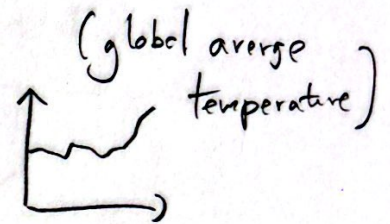 (global averge
temperature)